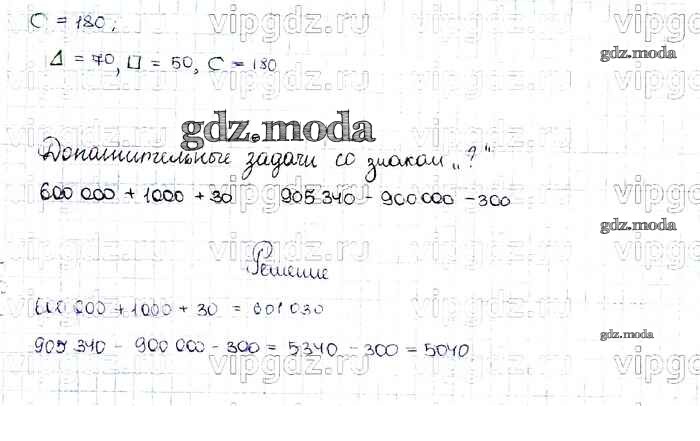 C = 180;
Δ = 70, □ = 50, C = 180
gdz.moda
Дополнительные задачи со знаком „?"
600 000 + 1000 + 30 905 340 - 900 000 - 300
gdz.moda
Решение
600 000 + 1000 + 30 = 601 030
gdz.moda
905 340 - 900 000 - 300 = 5340 - 300 = 5040
gdz.moda
vipgdz.ru